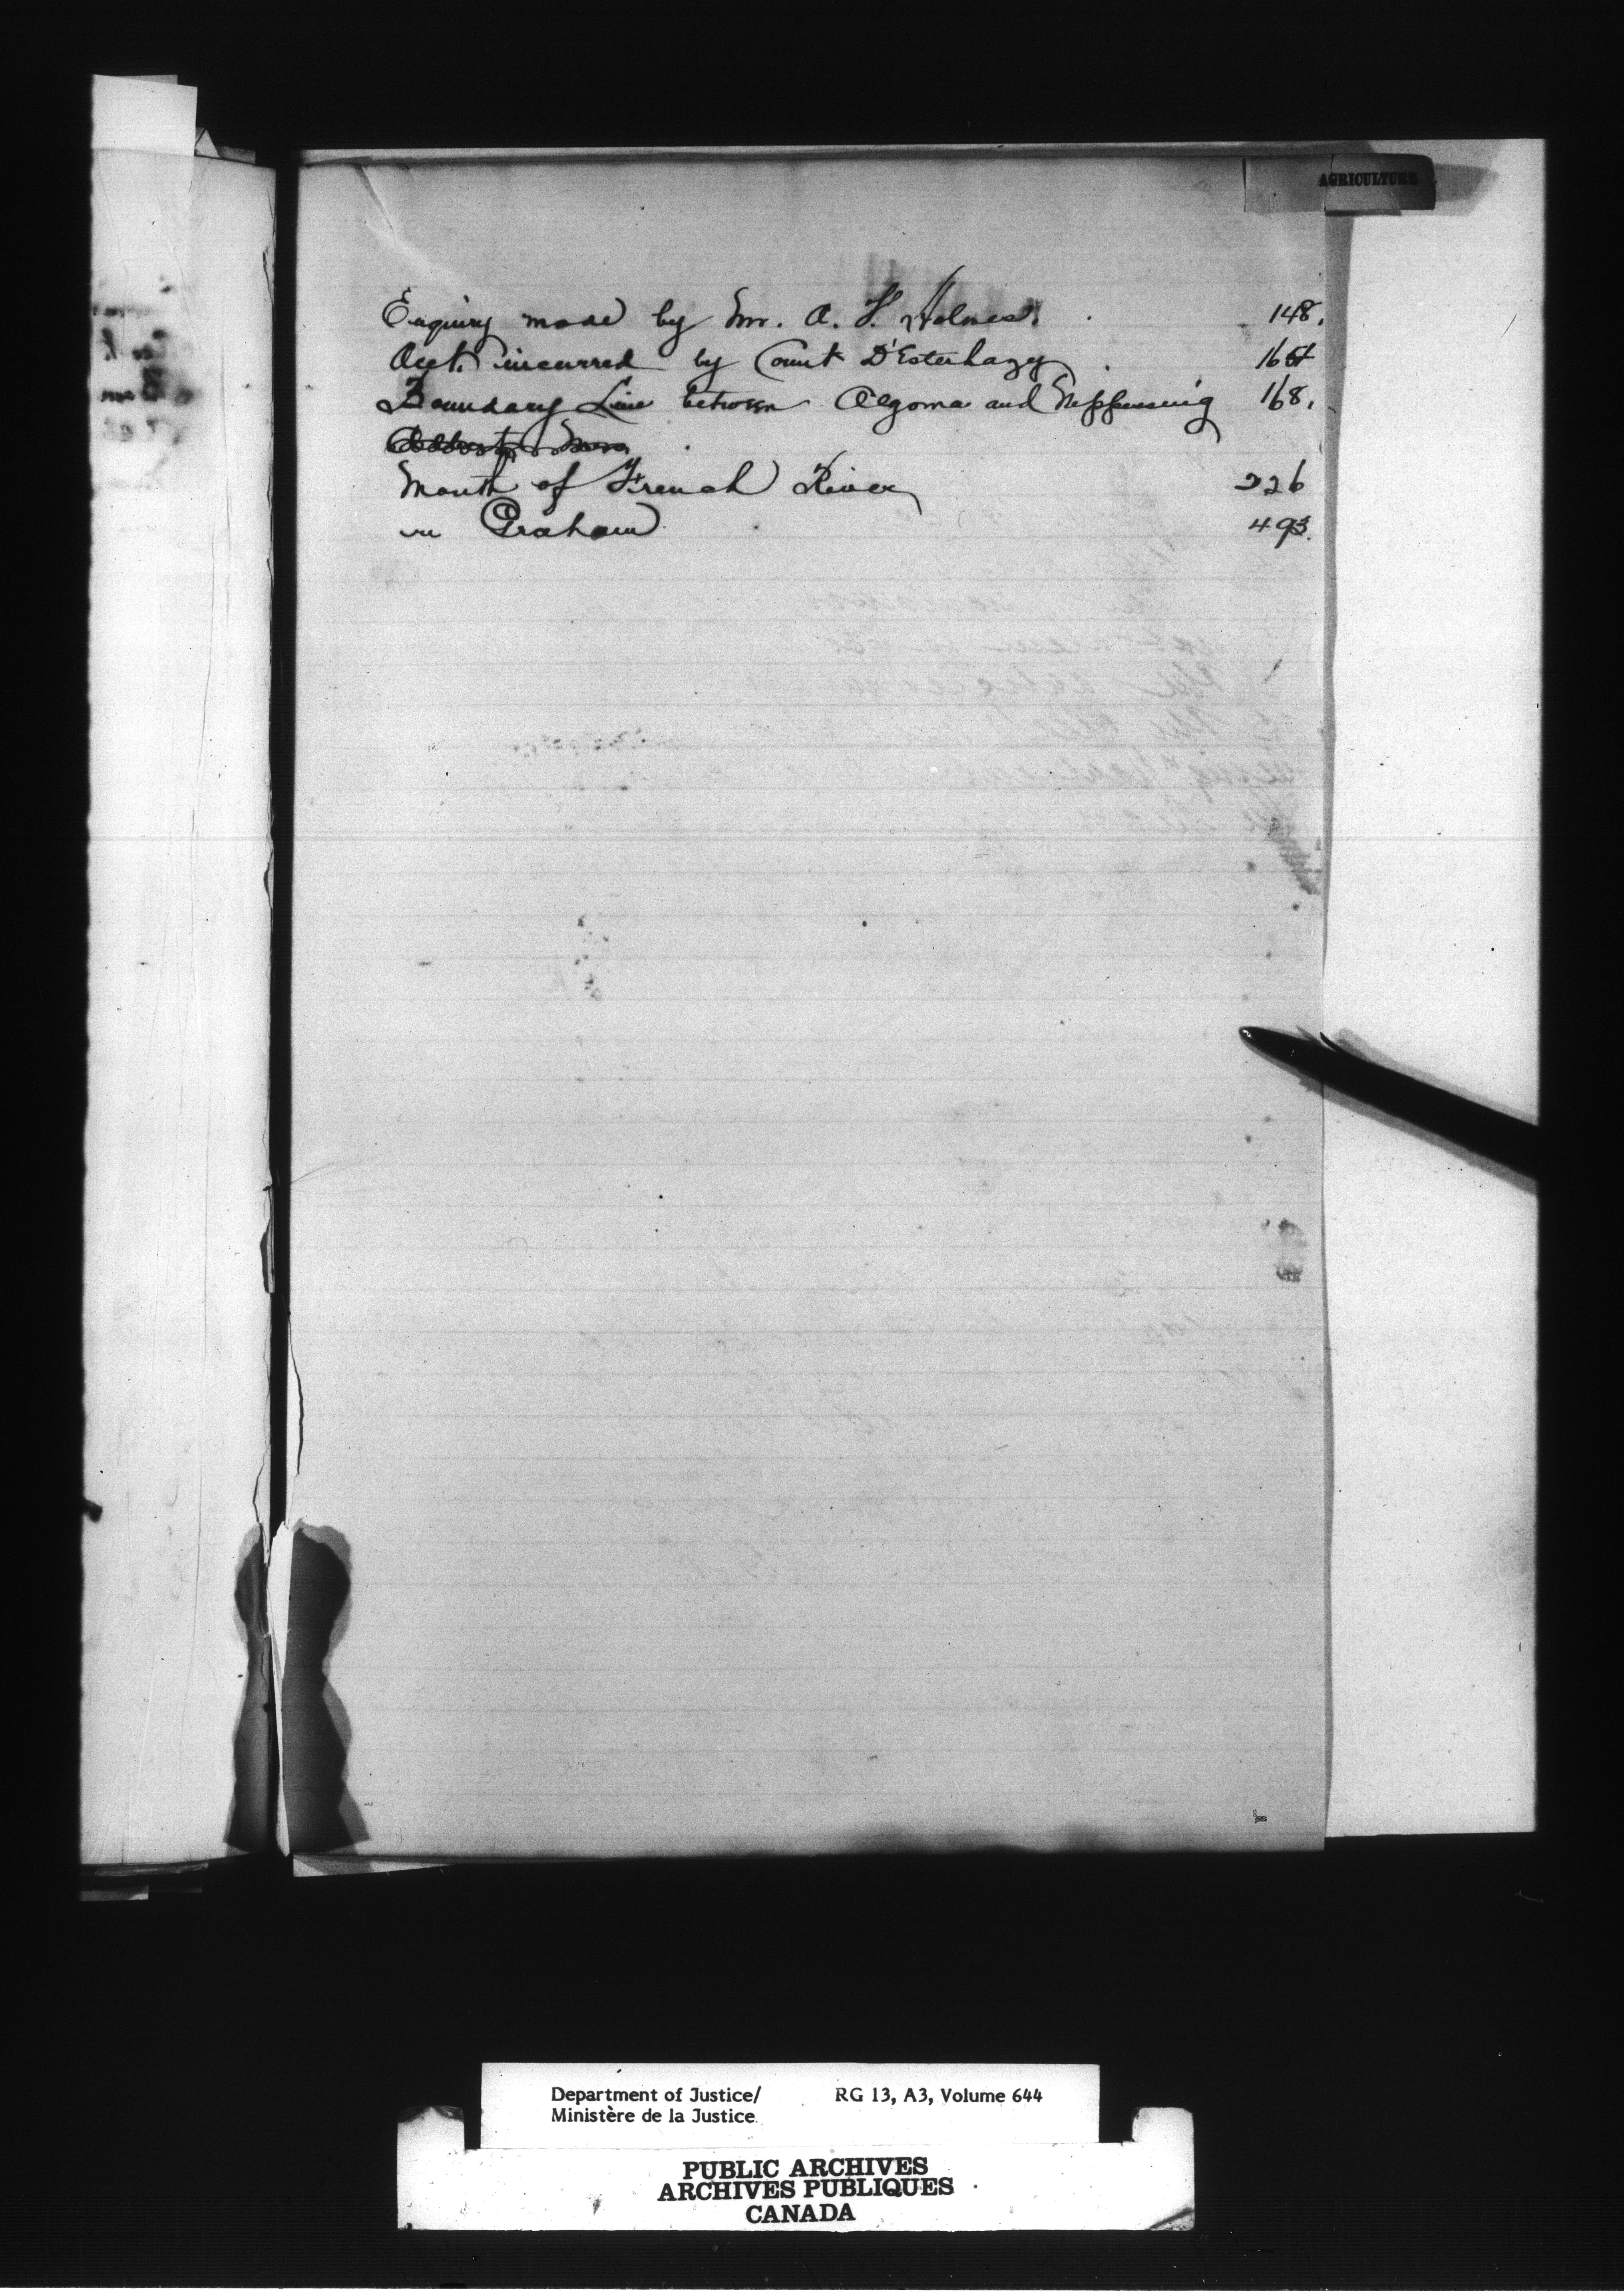 AGRICULTURE
Enquiry made by Mr. A. F. Holmes. 148.
Acct. incurred by Count D'Esterhazy 164
Boundary Line between Algoma and Nippissing 168.
Mouth of French River 226
in re Graham 493.
Department of Justice/ RG 13, A3, Volume 644
Ministère de la Justice
PUBLIC ARCHIVES
ARCHIVES PUBLIQUES
CANADA